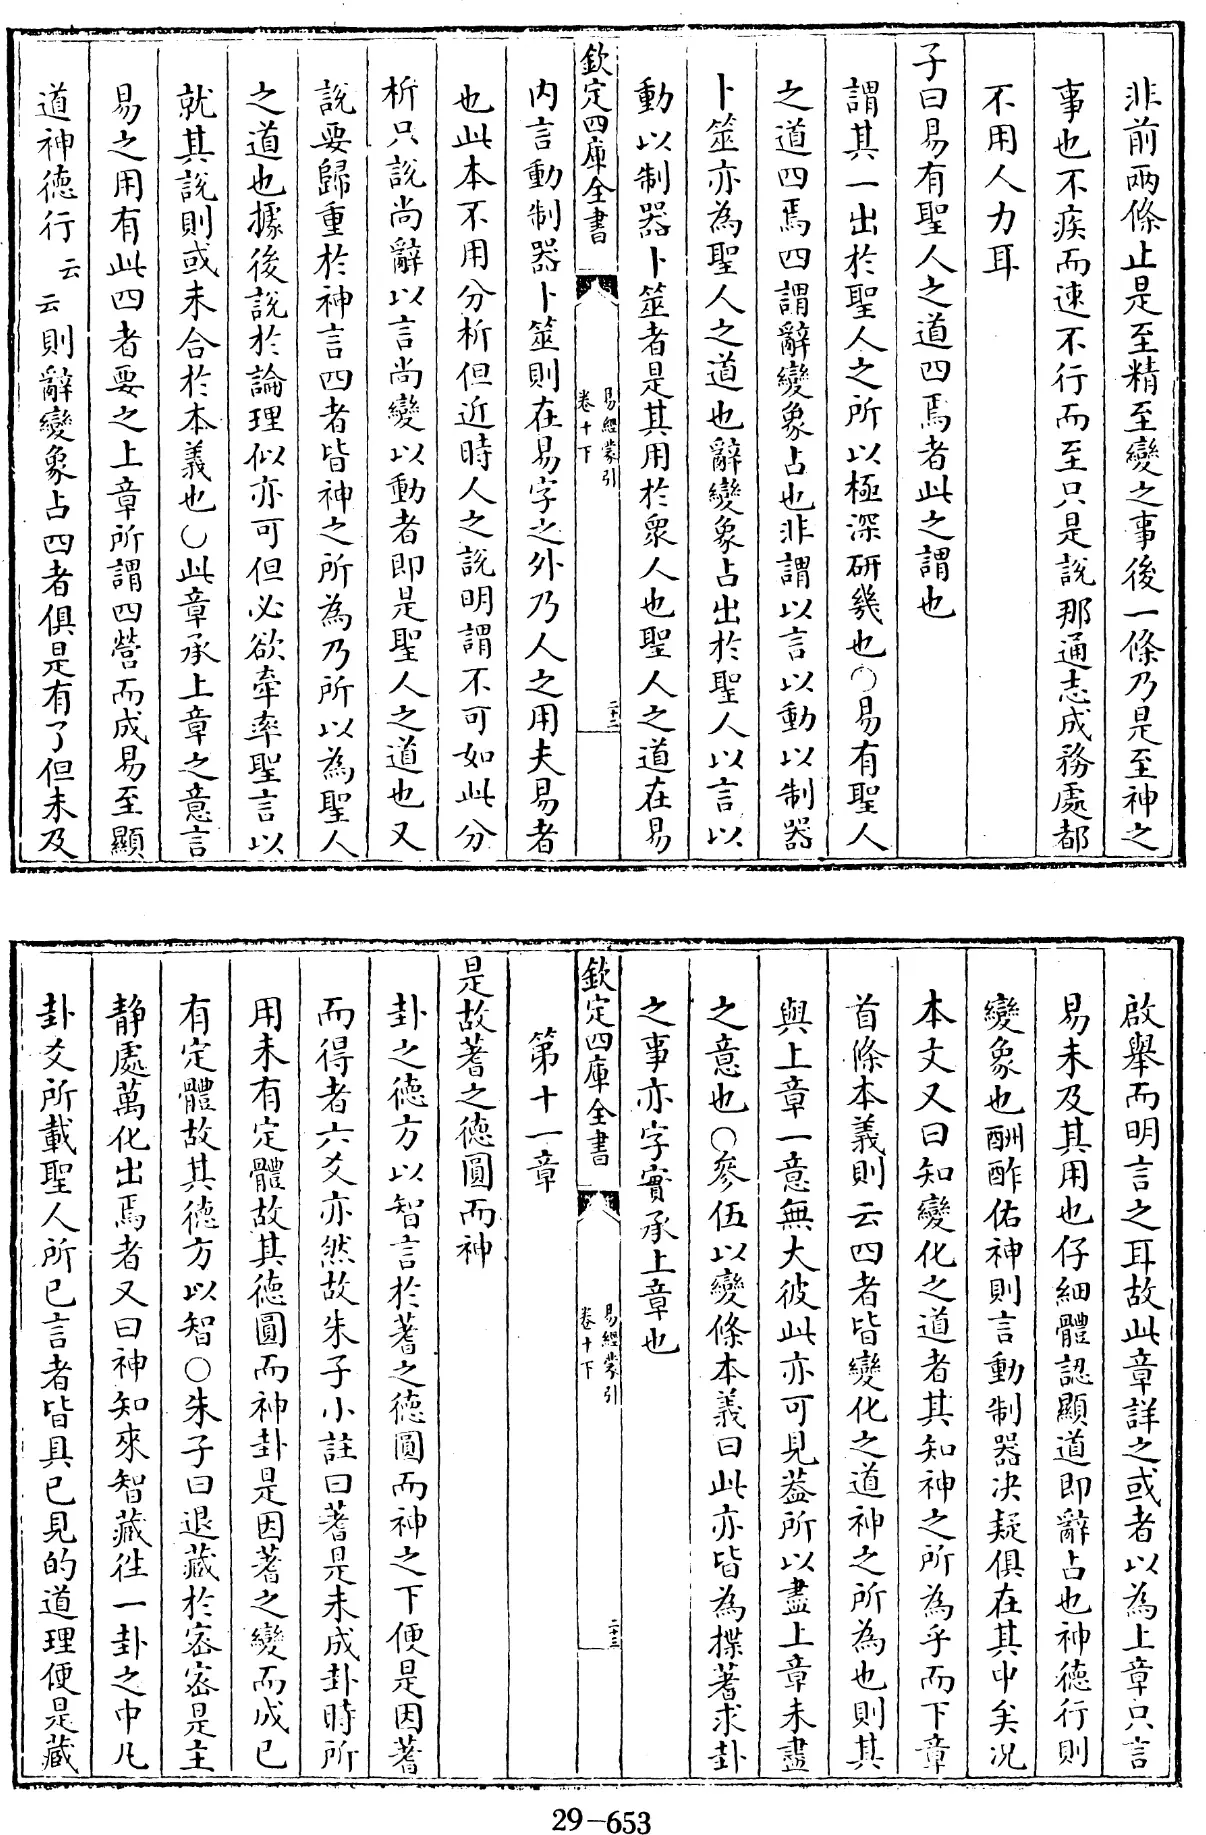 非前兩條止是至精至變之事後一條乃是至神之
事也不疾而速不行而至只是說那通志成務處都
不用人力耳
子曰易有聖人之道四焉者此之謂也
謂其一出於聖人之所以極深研幾也○易有聖人
之道四焉四謂辭變象占也非謂以言以動以制器
卜筮亦為聖人之道也辭變象占出於聖人以言以
動以制器卜筮者是其用於衆人也聖人之道在易
欽定四庫全書
易經蒙引
卷十下
二十二
内言動制器卜筮則在易字之外乃人之用夫易者
也此本不用分析但近時人之說明謂不可如此分
析只說尚辭以言尚變以動者即是聖人之道也又
說要歸重於神言四者皆神之所為乃所以為聖人
之道也據後說於論理似亦可但必欲牽率聖言以
就其說則或未合於本義也○此章承上章之意言
易之用有此四者要之上章所謂四營而成易至顯
道神德行云云則辭變象占四者俱是有了但未及
啟舉而明言之耳故此章詳之或者以為上章只言
易未及其用也仔細體認顯道即辭占也神德行則
變象也酬酢佑神則言動制器决疑俱在其中矣況
本文又曰知變化之道者其知神之所為乎而下章
首條本義則云四者皆變化之道神之所為也則其
與上章一意無大彼此亦可見葢所以盡上章未盡
之意也○參伍以變條本義曰此亦皆為揲蓍求卦
之事亦字實承上章也
欽定四庫全書
易經蒙引
卷十下
二十三
第十一章
是故蓍之德圓而神
卦之德方以智言於蓍之德圓而神之下便是因蓍
而得者六爻亦然故朱子小註曰蓍是未成卦時所
用未有定體故其德圓而神卦是因蓍之變而成已
有定體故其德方以智○朱子曰退藏於宻宻是主
靜處萬化出焉者又曰神知來智藏徃一卦之中凡
卦爻所載聖人所已言者皆具已見的道理便是藏
29-653